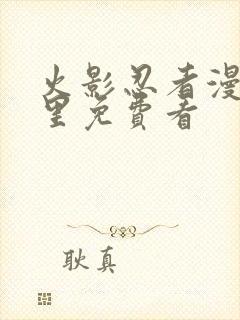 火影忍者漫
里免費看
耿真